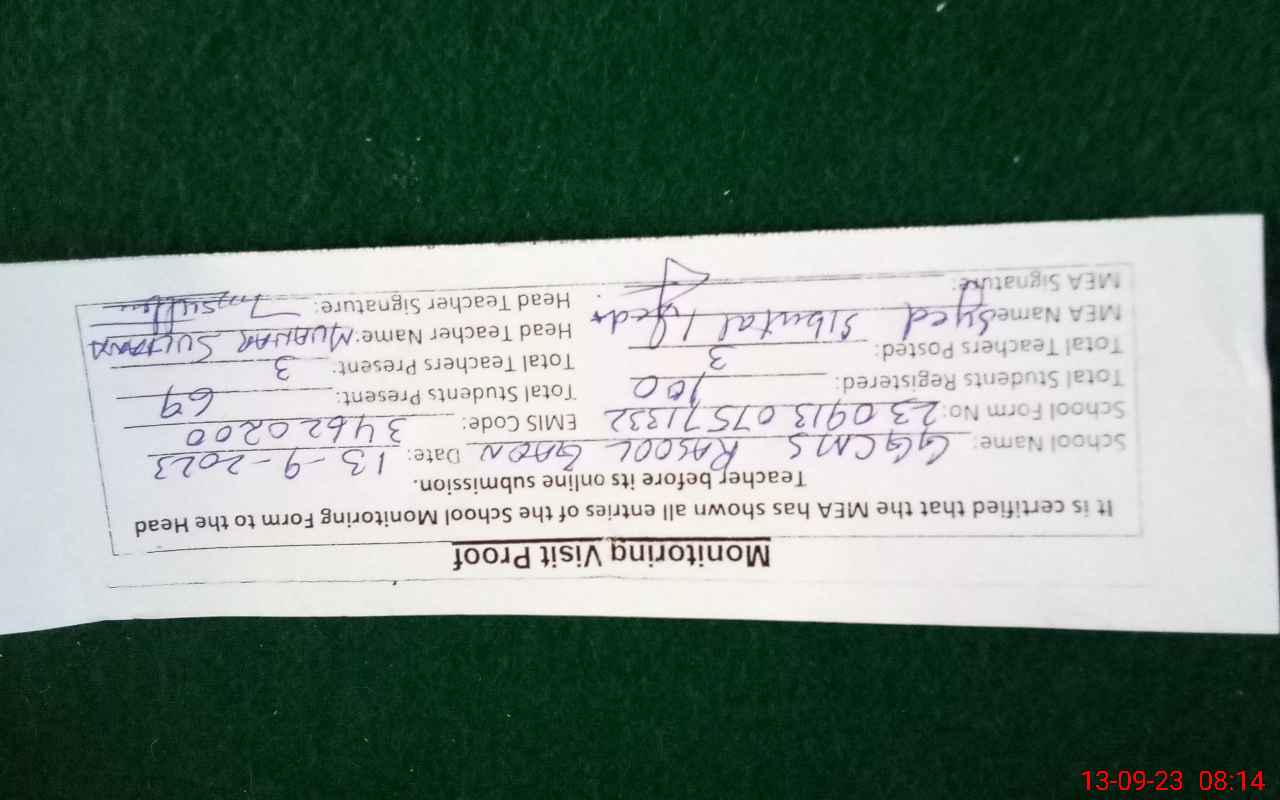 Monitoring Visit Proof
It is certified that the MEA has shown all entries of the School Monitoring Form to the Head
Teacher before its online submission.
School Name: GGCMS RASOOL GAON Date: 13-9-2023
School Form No: 23091307571332 EMIS Code: 34620200
Total Students Registered: 100 Total Students Present: 69
Total Teachers Posted: 3 Total Teachers Present: 3
MEA Name: Syed Sibutal Head Teacher Name: SULTANA
MEA Signature: Head Teacher Signature:
13-09-23 08:14